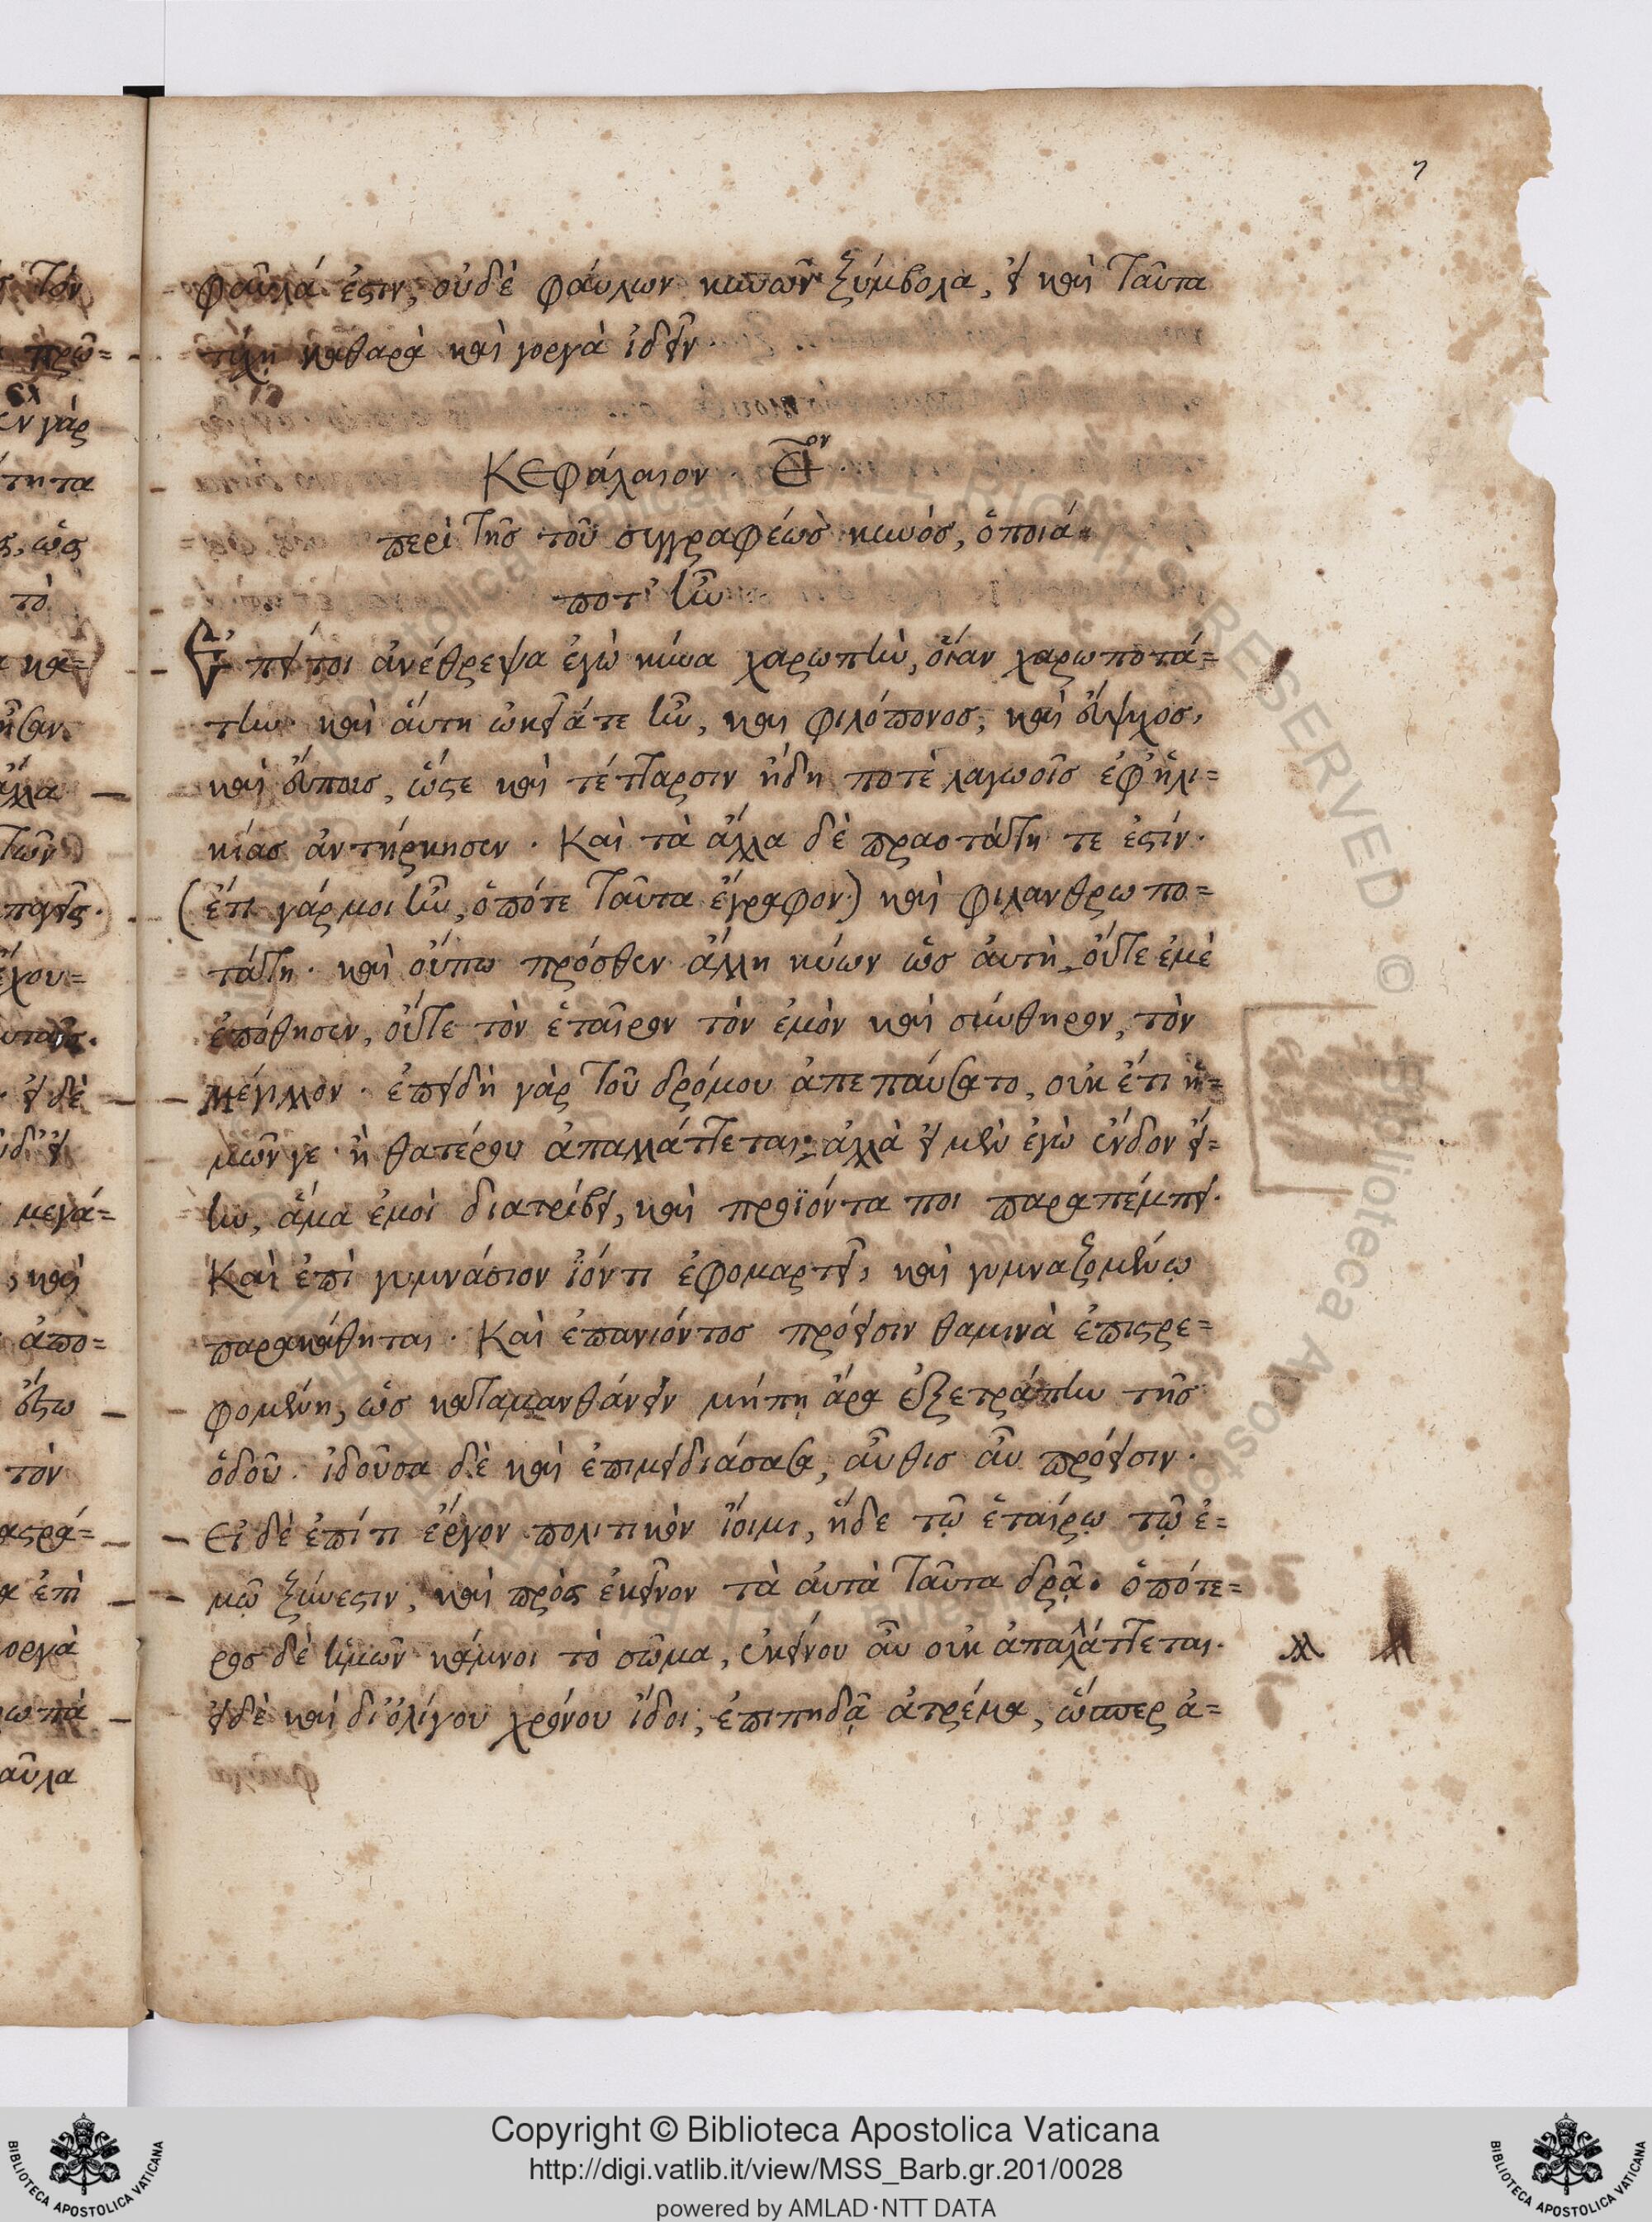 7
φαῦλά ἐστιν, οὐδὲ φάυλων κυνῶν ξύμβολα, εἰ καὶ ταῦτα
τύχῃ καθαρὰ καὶ γοργὰ ἰδεῖν.
Κεφάλαιον. ε̅ον.
περὶ τῆς τοῦ συγγραφέως κυνὸς, ὁποιά=
ποτ' ἦν
Ἐπεί τοι ἀνέθρεψα ἐγὼ κύνα χαρωπὴν, οἵαν χαρωποτά=
την. καὶ ἅυτη ὠκεῖά τε ἦν, καὶ φιλόπονος, καὶ εὔψυχος,
καὶ εὔπους, ὥστε καὶ τέτταρσιν ἤδη ποτὲ λαγωοῖς ἐφ' ἡλι=
κίας ἀντήρκησεν. Καὶ τὰ ἄλλα δὲ πραοτάτη τε ἐστίν.
(ἔτι γάρ μοι ἦν, ὁπότε ταῦτα ἔγραφον.) καὶ φιλανθρωπο=
τάτη. καὶ οὔπω πρόσθεν ἄλλη κύων ὡς ἀυτὴ, οὔτε ἐμὲ
ἐπόθησεν, οὔτε τὸν ἑταῖρον τὸν ἐμὸν καὶ σύνθηρον, τὸν
μέγιλλον. ἐπειδὴ γὰρ τοῦ δρόμου ἀπεπάυσατο, οὐκ ἔτι ἡ=
μῶν γε ἢ θατέρου ἀπαλλάττεται. ἀλλὰ εἰ μὲν ἐγὼ ἔνδον εἴ=
ην, ἅμα ἐμοὶ διατρίβει, καὶ προϊόντα ποι παραπέμπει.
Καὶ ἐπὶ γυμνάσιον ἰόντι ἐφομαρτεῖ, καὶ γυμναζομένῳ
παρακάθηται. Καὶ ἐπανιόντος πρόεισιν θαμινὰ ἐπιστρε=
φομένη, ὡς καταμανθάνειν μήπῃ ἄρα ἐξετράπην τῆς
ὁδοῦ. ἰδοῦσα δὲ καὶ ἐπιμειδιάσασα, αὖθις αὖ πρόεισιν.
Εἰ δὲ ἐπί τι ἔργον πολιτικὸν ἴοιμι, ἥδε τῷ ἑταίρῳ τῷ ἐ=
μῷ ξύνεστιν, καὶ πρὸς ἐκεῖνον τὰ ἀυτὰ ταῦτα δρᾷ. ὁπότε=
ρος δὲ ἡμῶν κάμνοι τὸ σῶμα, ἐκείνου αὖ οὐκ ἀπαλάττεται.
λλ
εἰ δὲ καὶ δι' ὀλίγου χρόνου ἴδοι, ἐπιπηδᾷ ἀτρέμα, ὥσπερ ἀ=
Copyright © Biblioteca Apostolica Vaticana
http://digi.vatlib.it/view/MSS_Barb.gr.201/0028
powered by AMLAD·NTT DATA